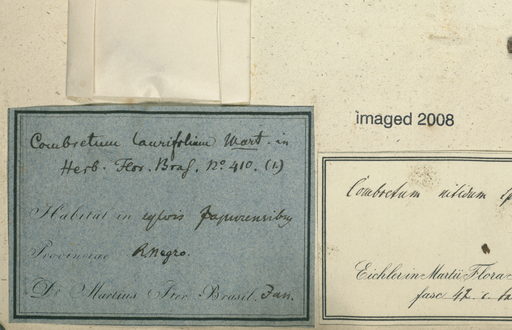 imaged 2008
Combretum laurifolium Mart. in
Herb. Flor. Bras. No. 410. (b)
Habitat in sylvis japurensibus
Provinciae R. Negro.
Dr. Martius Iter Brasil. Jan.
Combretum nitidum
Eichler in Martii Flora
fasc 42